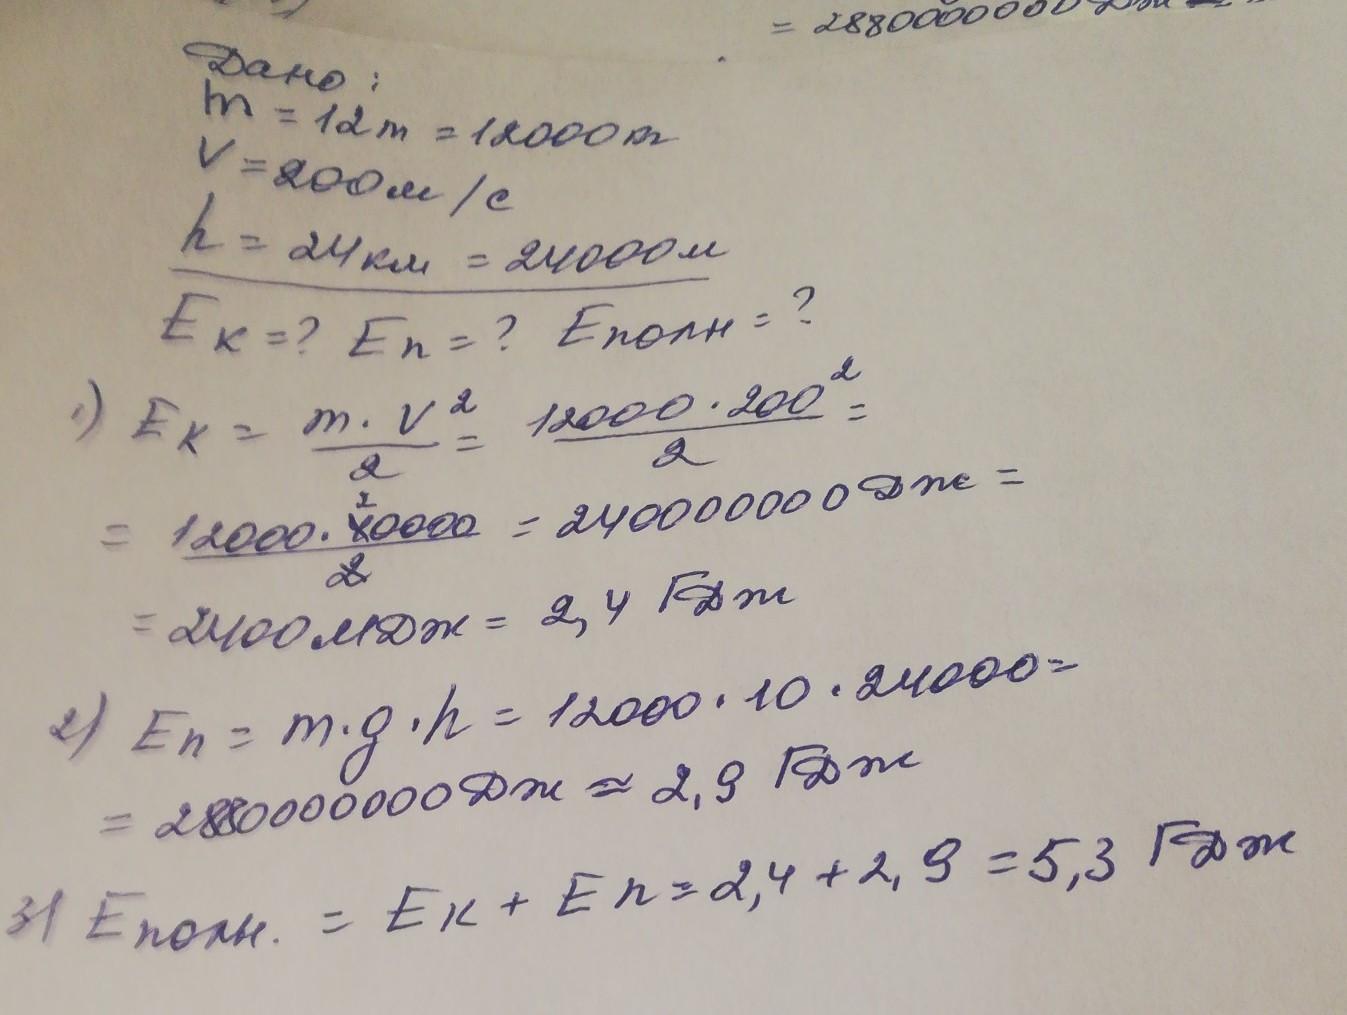 = 2880000000 Дж
Дано:
m = 12т = 12000кг
V = 200м/с
h = 24км = 24000м
Eк = ? Eп = ? Eполн = ?
1) Eк = m · V² / 2 = 12000 · 200² / 2 =
= 12000 · 40000 / 2 = 240000000 Дж =
= 2400 МДж = 2,4 ГДж
2) Eп = m · g · h = 12000 · 10 · 24000 =
= 2880000000 Дж ≈ 2,9 ГДж
3) Eполн. = Eк + Eп = 2,4 + 2,9 = 5,3 ГДж